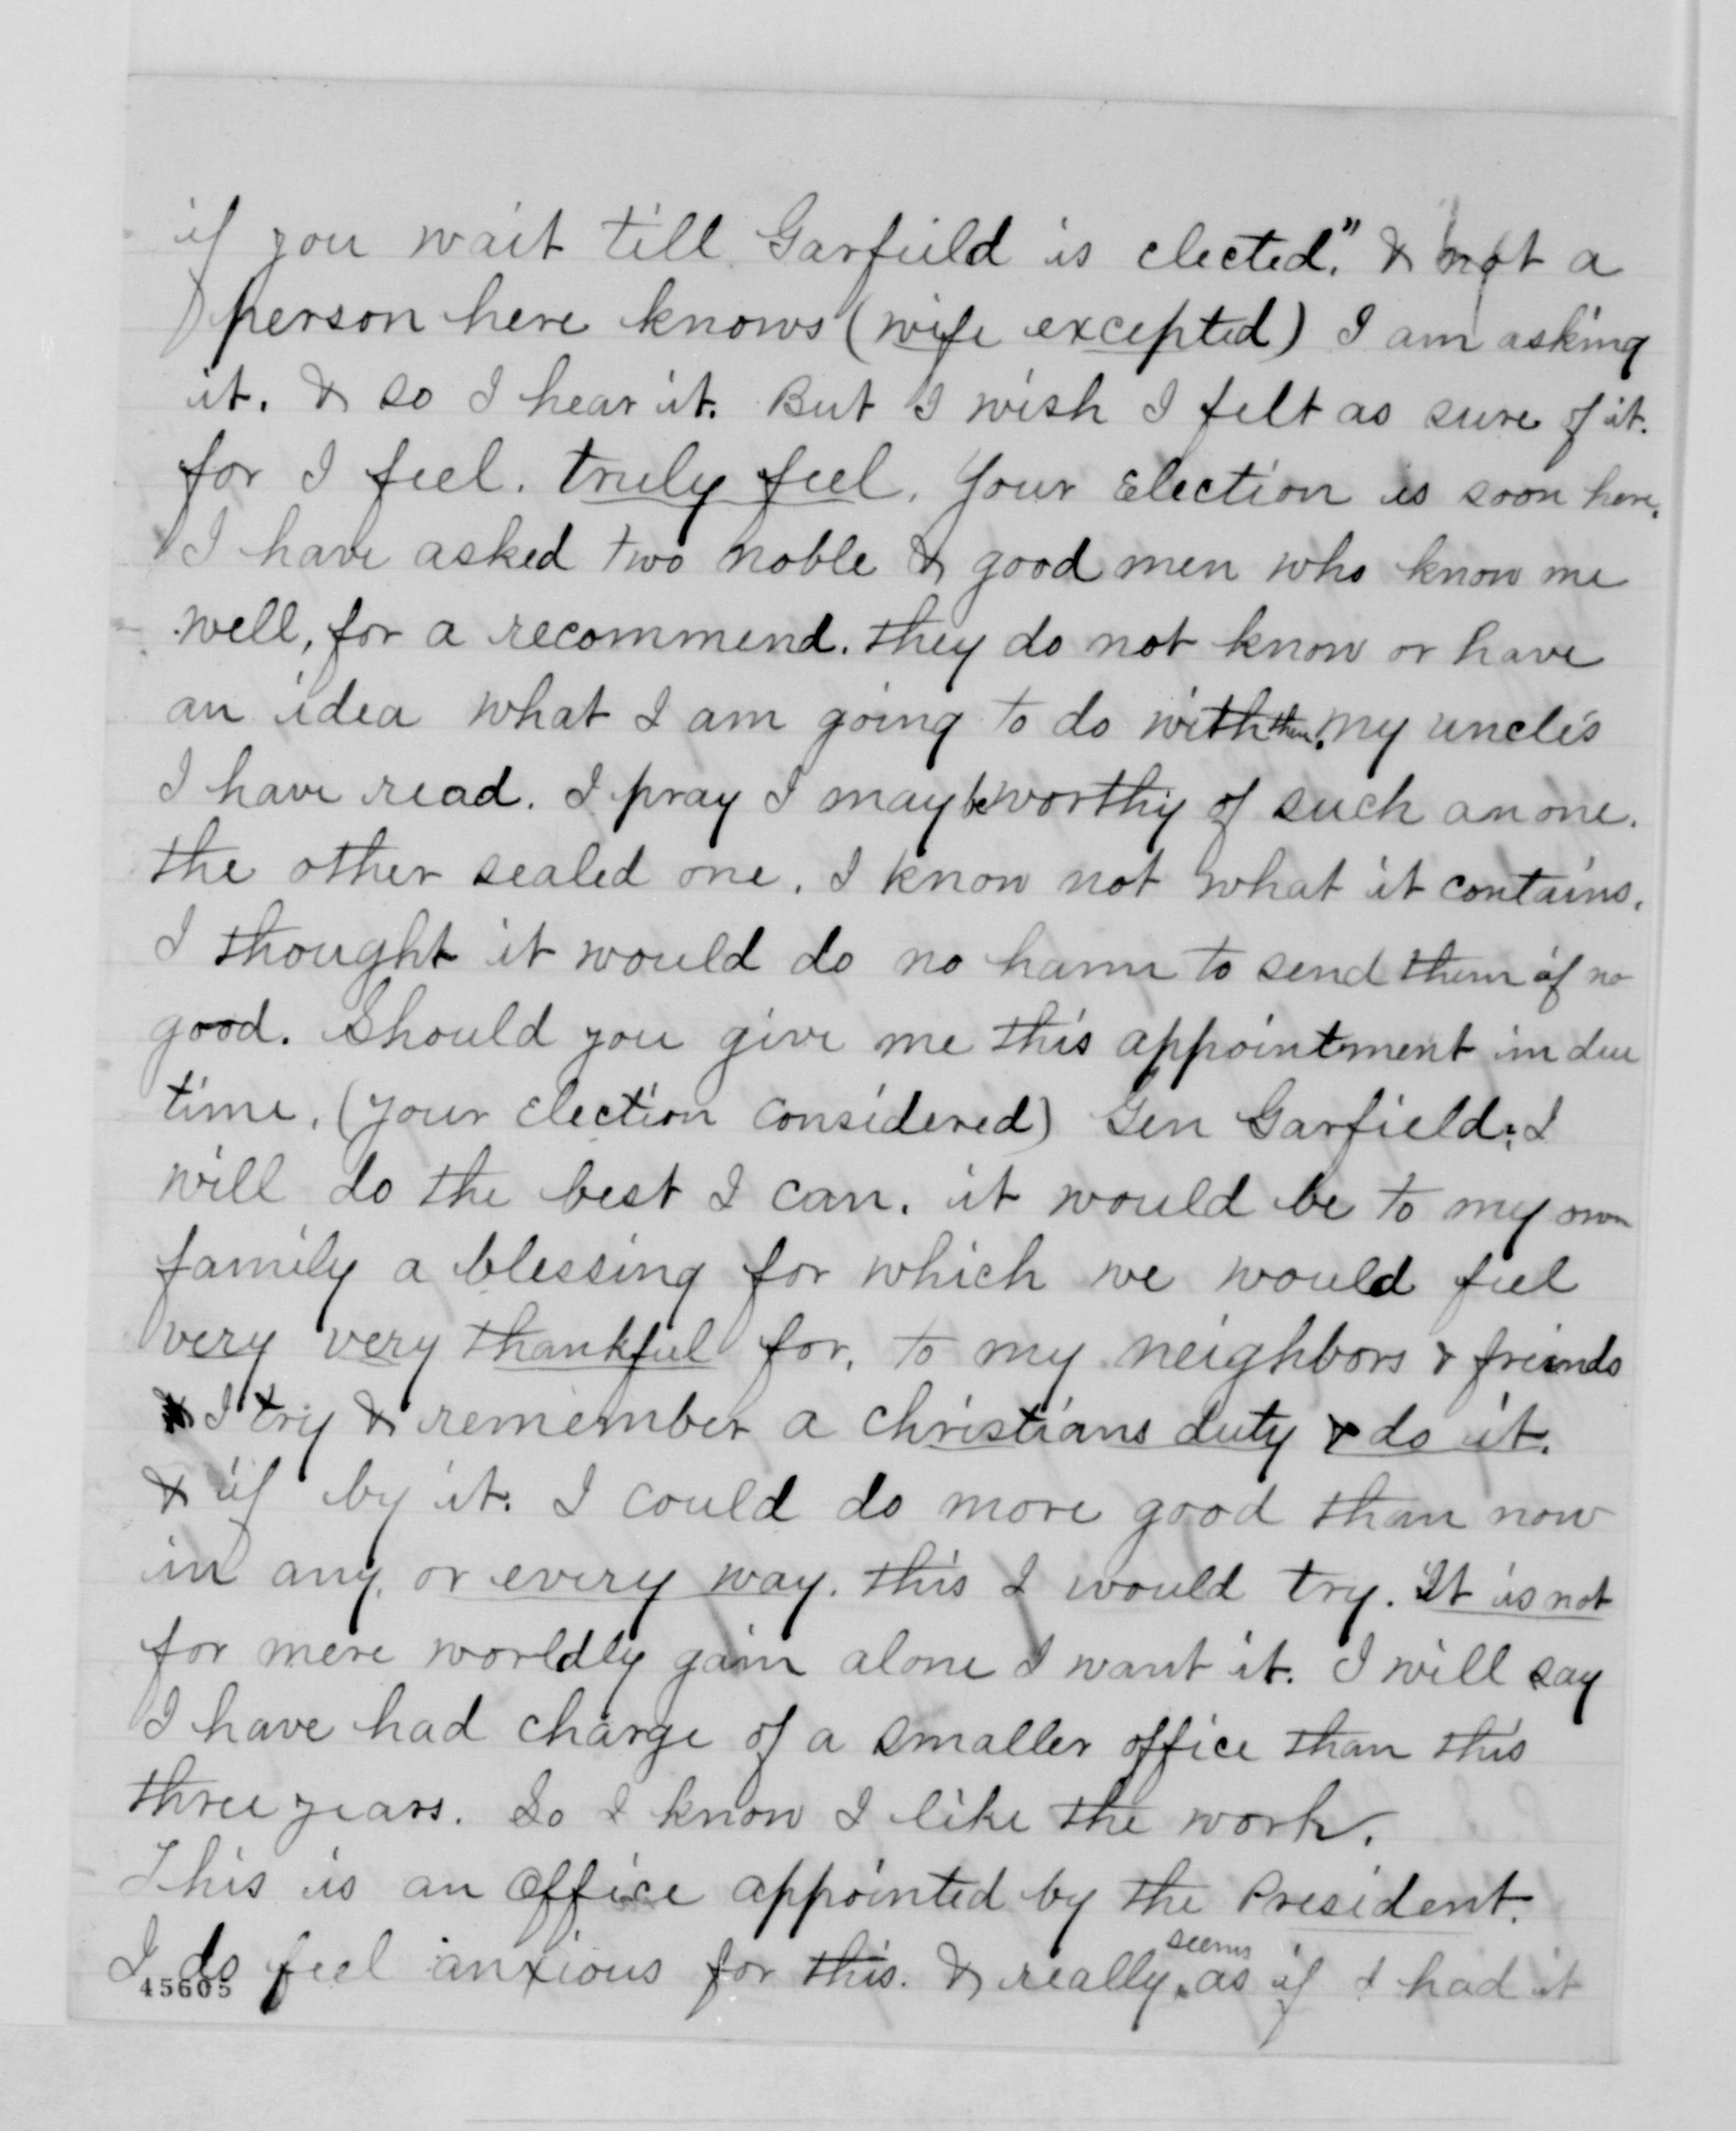 if you wait till Garfield is elected." & not a
person here knows (wife excepted) I am asking
it. & so I hear it. But I wish I felt as sure of it.
for I feel. truly feel. Your Election is soon here.
I have asked two noble & good men who know me
well, for a recommend. they do not know or have
an idea what I am going to do with them. My uncle's
I have read. I pray I may be worthy of such an one.
the other sealed one. I know not what it contains.
I thought it would do no harm to send them if no
good. Should you give me this appointment in due
time. (your Election considered) Gen Garfield; I
will do the best I can. it would be to my own
family a blessing for which we would feel
very very thankful for. to my neighbors & freinds
I try & remember a christians duty & do it.
& if by it. I could do more good than now
in any, or every way. this I would try. It is not
for mere worldly gain alone I want it. I will say
I have had charge of a smaller office than this
three years. So I know I like the work.
This is an Office appointed by the President.
I do feel anxious for this. & really seems as if I had it
45605